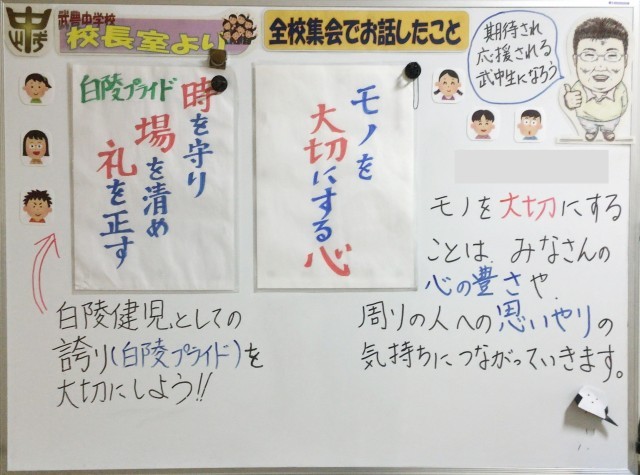 武豊中学校
校長室より
全校集会でお話したこと
期待され
応援される
武中生になろう
モノを
大切にする心
白陵プライド
時を守り
場を清め
礼を正す
モノを大切にする
ことは、みなさんの
心の豊さや、
周りの人への思いやりの
気持ちにつながっていきます。
白陵健児としての
誇り(白陵プライド)を
大切にしよう!!